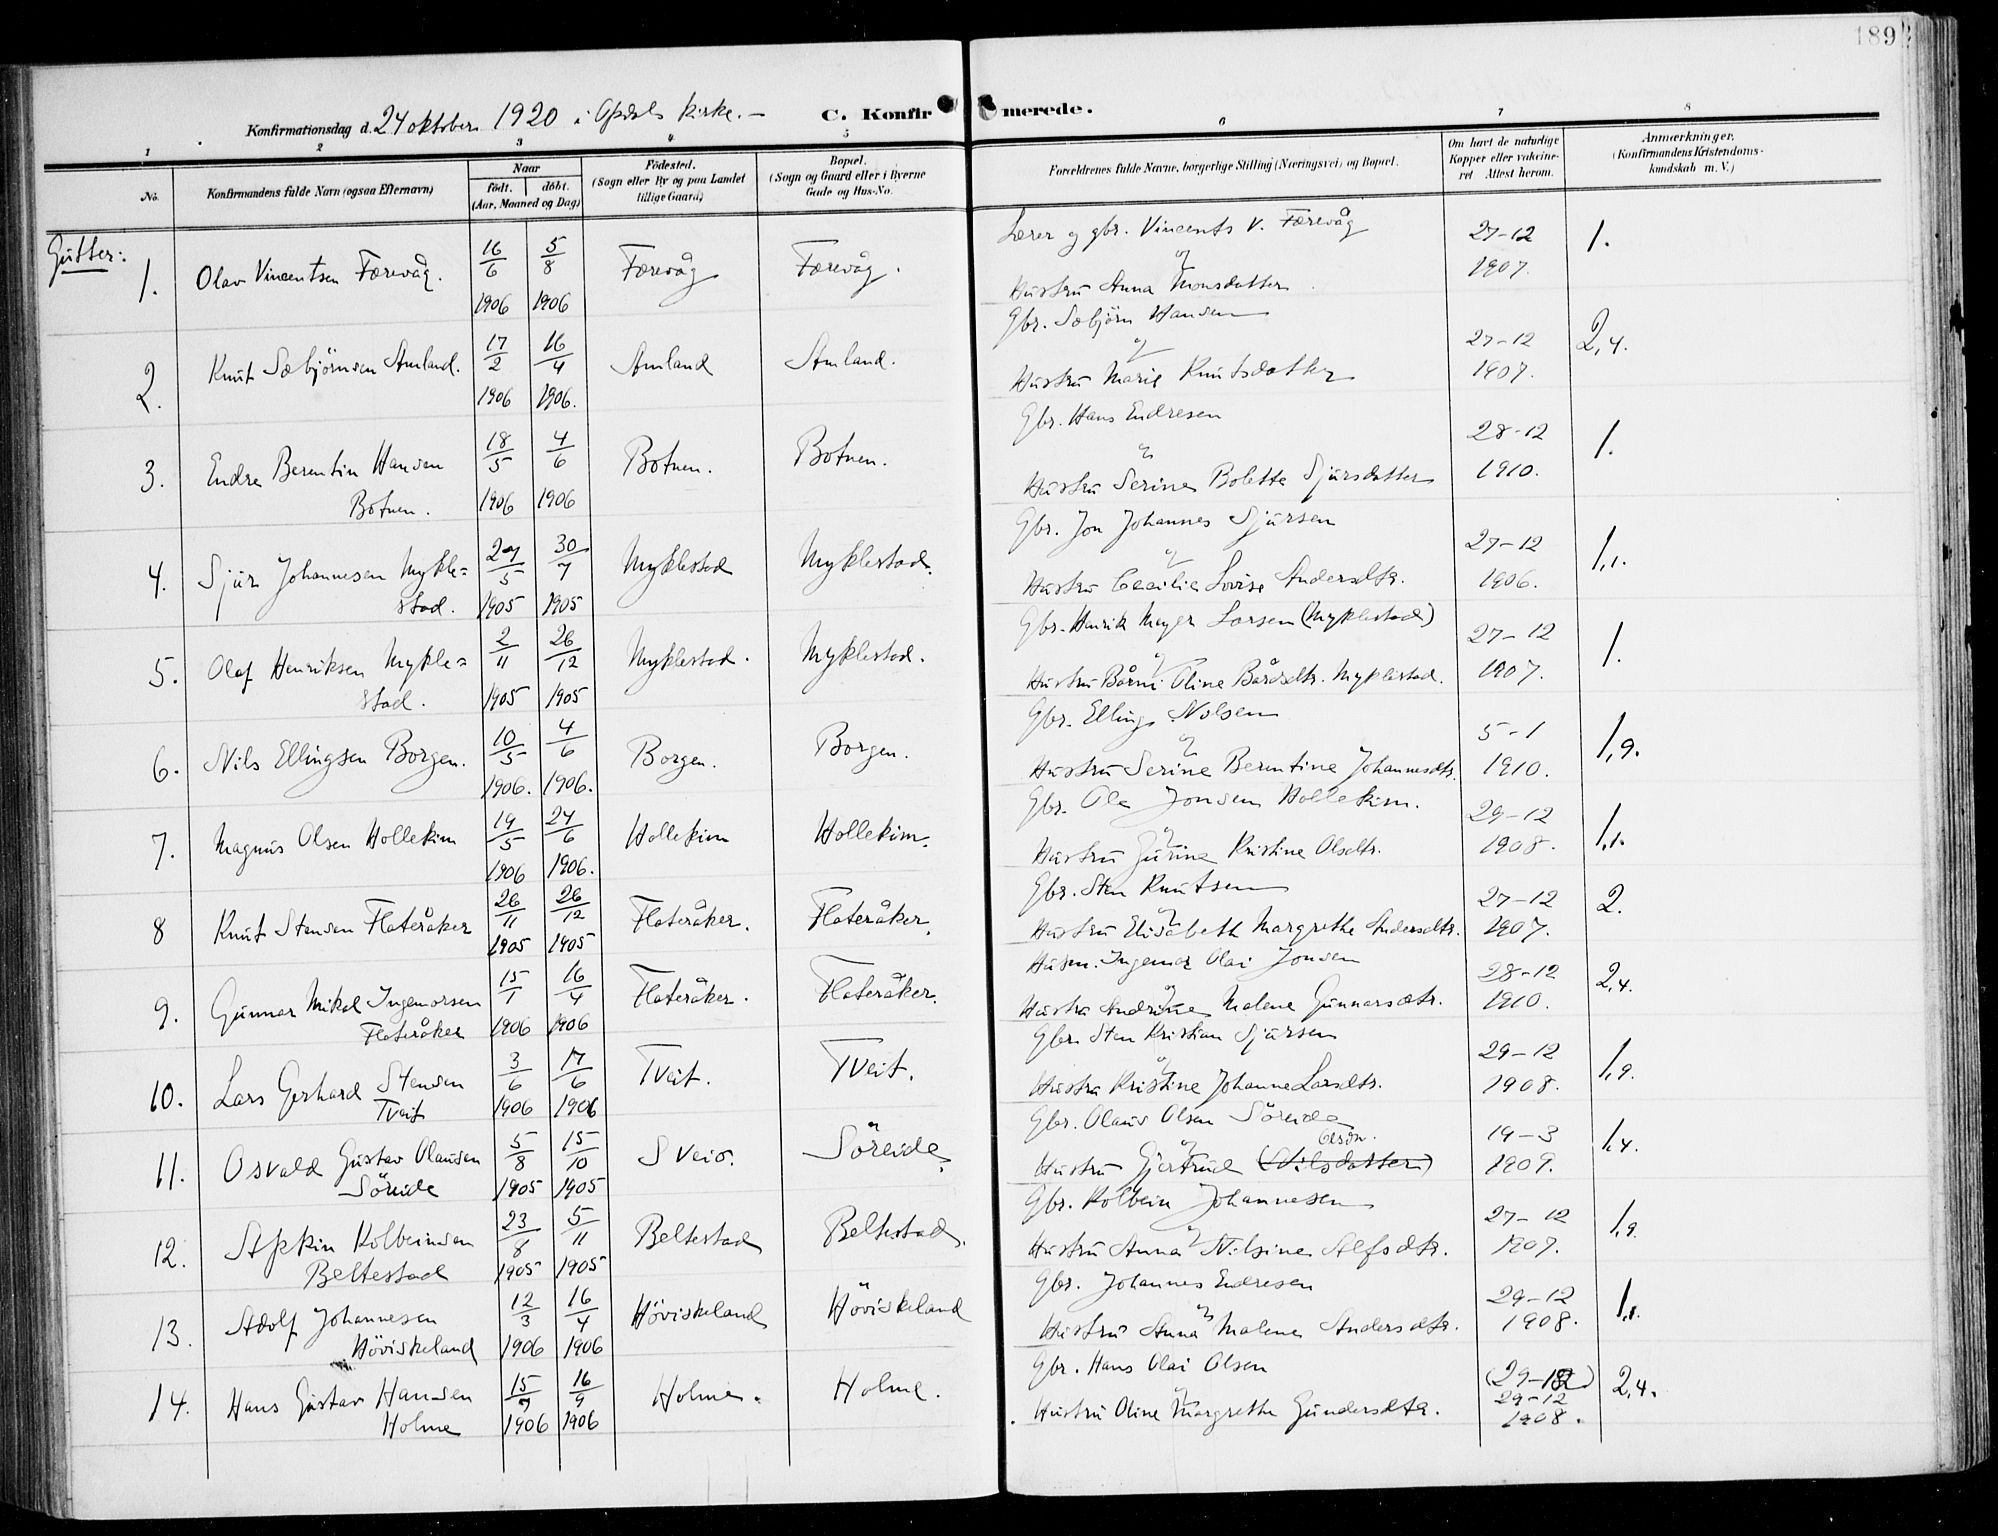 189
Konfirmationsdag d. 24 oktober 1920 i Opdal kirke. –
C. Konfirmerede.
1 2 3 4 5 6 7 8
No. Konfirmandens fulde Navn (ogsaa Efternavn) Naar født. døbt. (Aar, Maaned og Dag) Fødested. (Sogn eller By og paa Landet tillige Gaard) Bopæl. (Sogn og Gaard eller i Byerne Gade og Hus-No. Forældrenes fulde Navne, borgerlige Stilling (Næringsvei) og Bopæl. Om havt de naturlige Kopper eller vakcineret Attest herom. Anmærkninger. (Konfirmandens Kristendomskundskab m. V.)
Gutter:
1. Olav Vincentsen Færevåg. 16/6 1906 5/8 1906 Færevåg Færevåg. Lærer og gbr. Vincents V. Færevåg og Hustru Anna Monsdatter 27-12 1907. 1.
2. Knut Sæbjörnsen Amland. 17/2 1906 16/4 1906. Amland Amland. Gbr. Sæbjörn Hansen og Hustru Marie Knutsdatter 27-12 1907. 2,4.
3. Endre Berentin Hansen Botnen. 18/5 1906 4/6 1906 Botnen. Botnen. Gbr. Hans Endresen og Hustru Serine Bolette Sjursdatter 28-12 1910. 1.
4. Sjur Johannesen Myklestad. 27/5 1905 30/7 1905 Myklestad Myklestad. Gbr. Jon Johannes Sjursen og Hustru Cecilie Lovise Andersdtr. 27-12 1906. 1,1.
5. Olaf Henriksen Myklestad. 2/11 1905 26/12 1905 Myklestad. Myklestad. Gbr. Henrik Meyer Larsen (Myklestad) og Hustru Bårni Oline Bårdsdtr. Myklestad. 27-12 1907. 1.
6. Nils Ellingsen Borgen. 10/5 1906. 4/6 1906. Borgen. Borgen. Gbr. Elling Nilsen og Hustru Serine Berentine Johannesdtr. 5-1 1910. 1,9.
7. Magnus Olsen Hollekim 19/5 1906 24/6 1906. Hollekim Hollekim. Gbr. Ole Jonsen Hollekim. og Hustru Gurine Kristine Olsdtr. 29-12 1908. 1,1.
8 Knut Stensen Flateråker 26/11 1905 26/12 1905 Flateråker. Flateråker. Gbr. Sten Knutsen og Hustru Elisabeth Margrethe Andersdtr. 27-12 1907. 2.
9. Gunnar Mikal Ingemarsen Flateråker 15/1 1906 16/4 1906 Flateråker. Flateråker. Husm. Ingemar Olai Jonsen og Hustru Andrine Malene Gunnarsdtr. 28-12 1910. 2,4.
10. Lars Gerhard Stensen Tveit 3/6 1906 17/6 1906 Tveit. Tveit. Gbr. Sten Kristian Sjursen og Hustru Kristine Johanne Larsdtr. 29-12 1908. 1,9.
11. Osvald Gustav Olausen Söreide 5/8 1905 15/10 1905 Sveio. Söreide. Gbr. Olaus Olsen Söreide og Hustru Gjertrud (Nilsdatter) Olsdtr. 19-3 1909. 1,4.
12. Kolbeinsen Beltestad 23/8 1905 5/11 1905 Beltestad Beltestad. Gbr. Kolbein Johannesen og Hustru Anna Nilsine Alfsdtr. 27-12 1907. 1,9.
13. Adolf Johannesen Höviskeland 12/3 1906 16/4 1906 Höviskeland Höviskeland Gbr. Johannes Endresen og Hustru Anna Malene Andersdtr. 29-12 1908. 1,1.
14. Hans Gustav Hansen Holme 15/7 1906 16/9 1906 Holme. Holme. Gbr. Hans Olai Olsen og Hustru Oline Margrethe Gundersdtr. (29-12) 29-12 1908. 2,4.